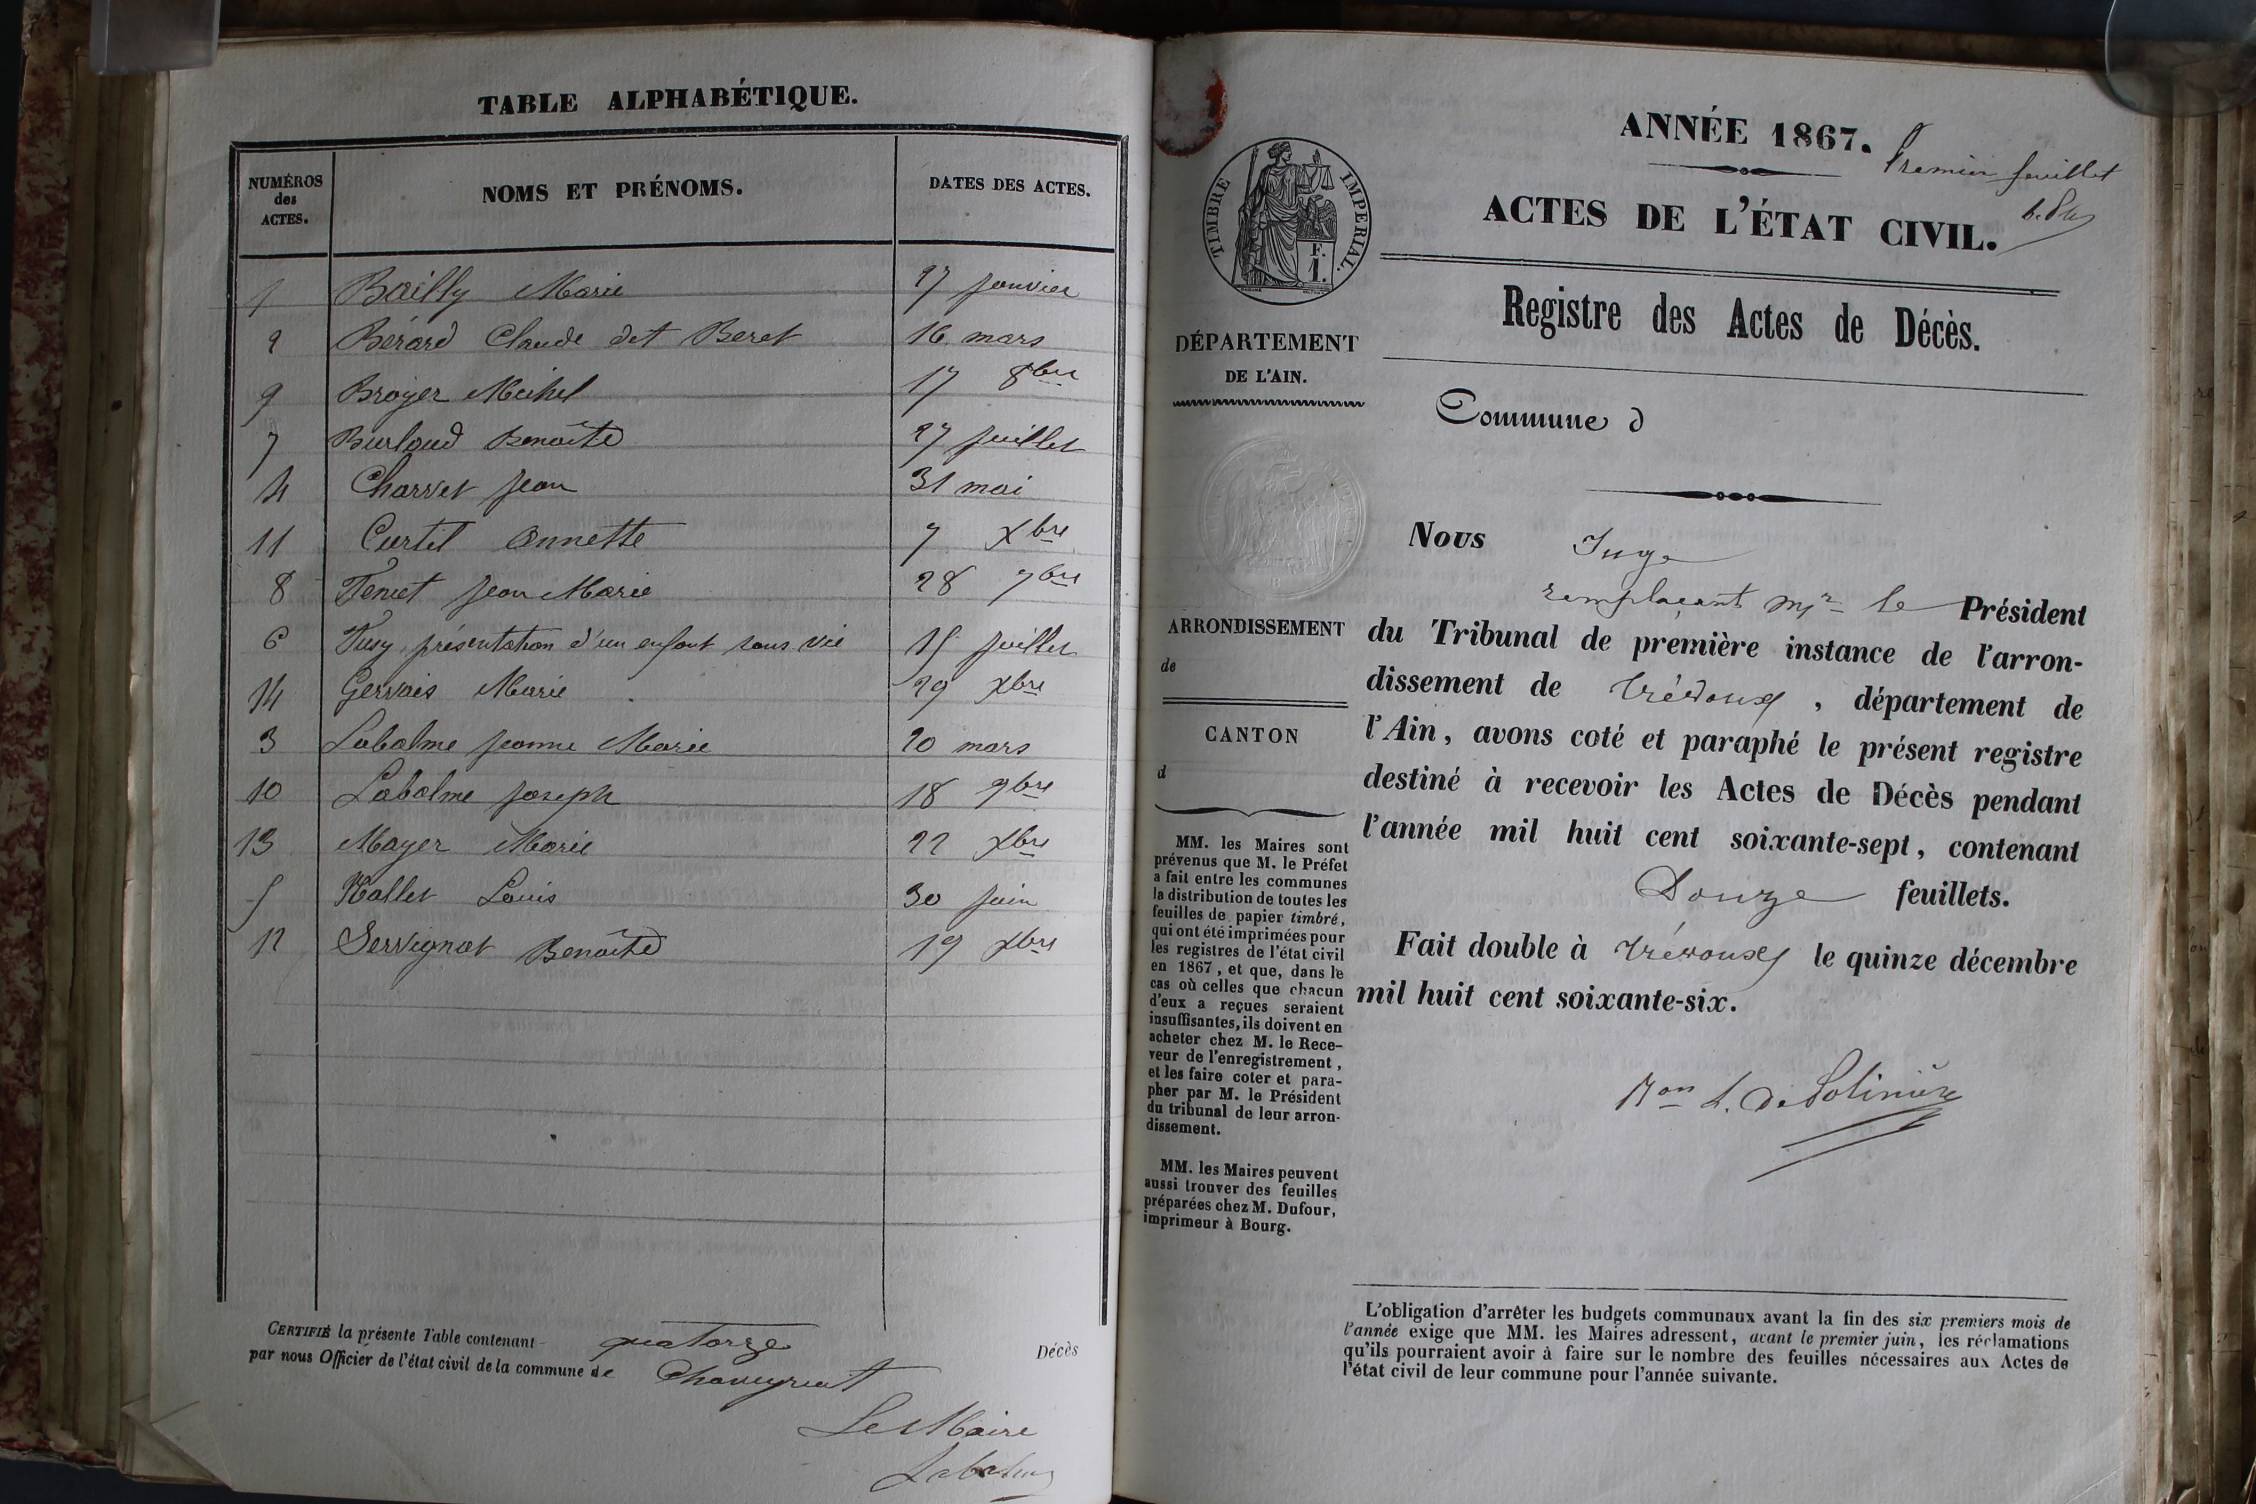 TABLE ALPHABÉTIQUE.
NUMÉROS des ACTES. NOMS ET PRÉNOMS. DATES DES ACTES.
1 Bailly Marie 27 janvier
2 Bérard Claude dit Beret 16 mars
9 Broyer Michel 17 8bre
7 Burloud Benoîte 27 juillet
4 Charvet Jean 31 mai
11 Curtil Annette 7 Xbre
8 Jean Marie 28 7bre
6 présentation d'un enfant sans vie 15 juillet
14 Gervais Marie 29 Xbre
3 Labalme Jeanne Marie 20 mars
10 Labalme Joseph 18 9bre
13 Mayer Marie 22 Xbre
5 Louis 30 juin
12 Servignat Benoîte 19 Xbre
CERTIFIÉ la présente Table contenant quatorze Décès
par nous Officier de l'état civil de la commune de Chaveyriat
Le Maire
Labalme
ANNÉE 1867.
Premier feuillet
ACTES DE L'ÉTAT CIVIL.
TIMBRE IMPERIAL.
F.
1.
Registre des Actes de Décès.
DÉPARTEMENT
DE L'AIN.
Commune d
Nous Juge
remplaçant Mr le Président
ARRONDISSEMENT
de
CANTON
d
du Tribunal de première instance de l'arron-
dissement de Trévoux, département de
l'Ain, avons coté et paraphé le présent registre
destiné à recevoir les Actes de Décès pendant
l'année mil huit cent soixante-sept, contenant
Douze feuillets.
Fait double à Trévoux le quinze décembre
mil huit cent soixante-six.
MM. les Maires sont
prévenus que M. le Préfet
a fait entre les communes
la distribution de toutes les
feuilles de papier timbré,
qui ont été imprimées pour
les registres de l'état civil
en 1867, et que, dans le
cas où celles que chacun
d'eux a reçues seraient
insuffisantes, ils doivent en
acheter chez M. le Rece-
veur de l'enregistrement,
et les faire coter et para-
pher par M. le Président
du tribunal de leur arron-
dissement.
MM. les Maires peuvent
aussi trouver des feuilles
préparées chez M. Dufour,
imprimeur à Bourg.
L'obligation d'arrêter les budgets communaux avant la fin des six premiers mois de
l'année exige que MM. les Maires adressent, avant le premier juin, les réclamations
qu'ils pourraient avoir à faire sur le nombre des feuilles nécessaires aux Actes de
l'état civil de leur commune pour l'année suivante.